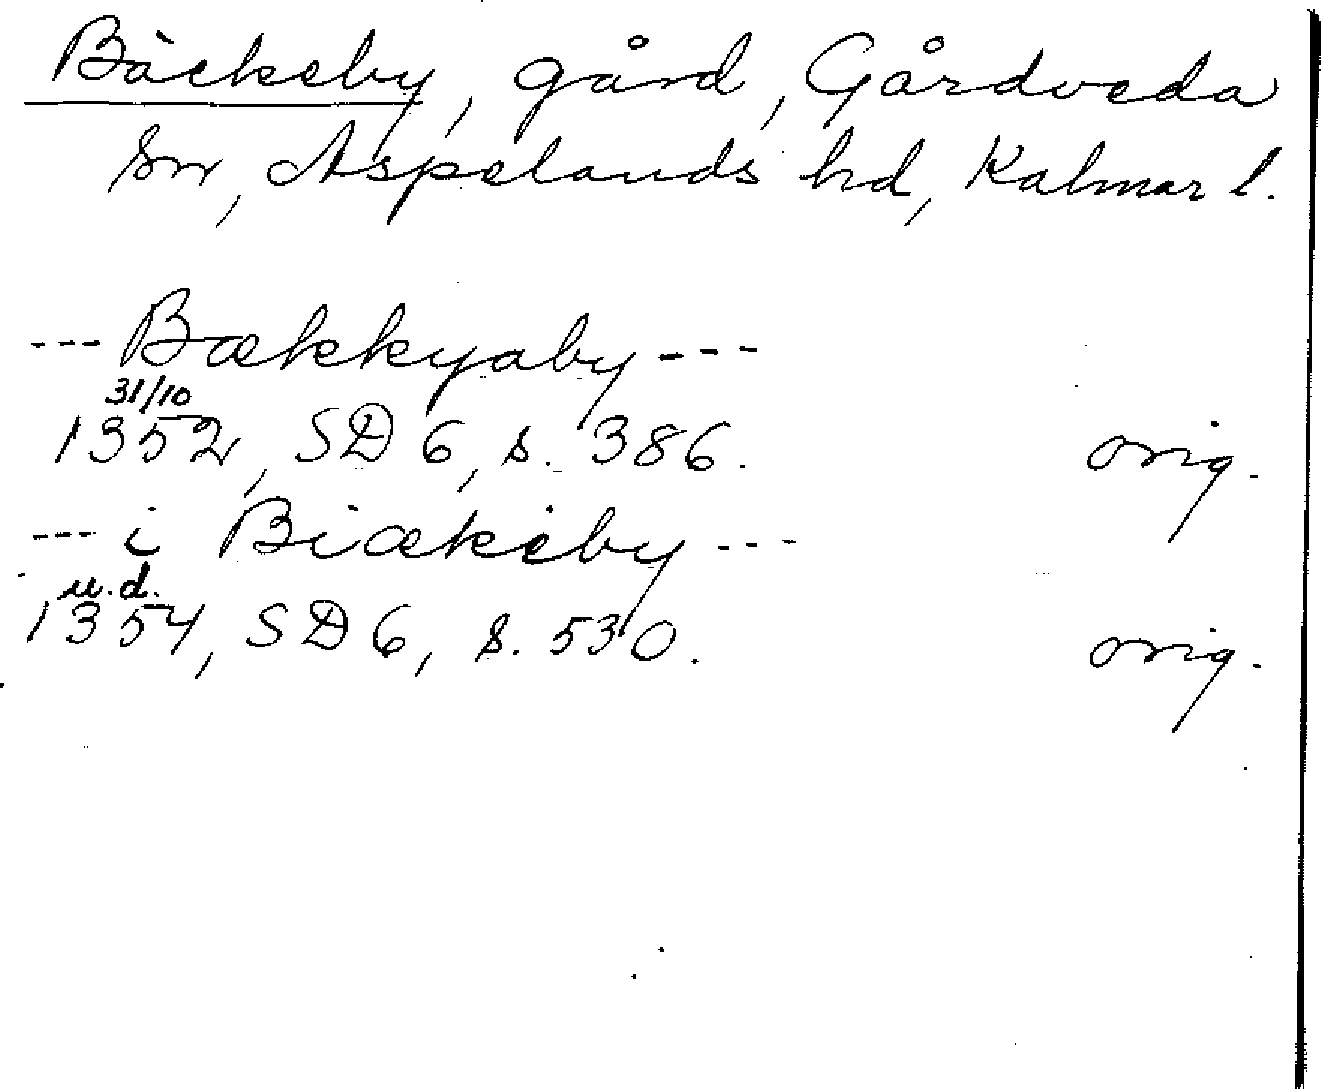 Bäckeby, gård, Gårdveda
sn, Aspelands hd, Kalmar l.
---Bækkyaby---
31/10
1352, SD 6, s. 386. orig.
--- i Biækeby ---
u.d.
1354, SD 6, s. 530. orig.